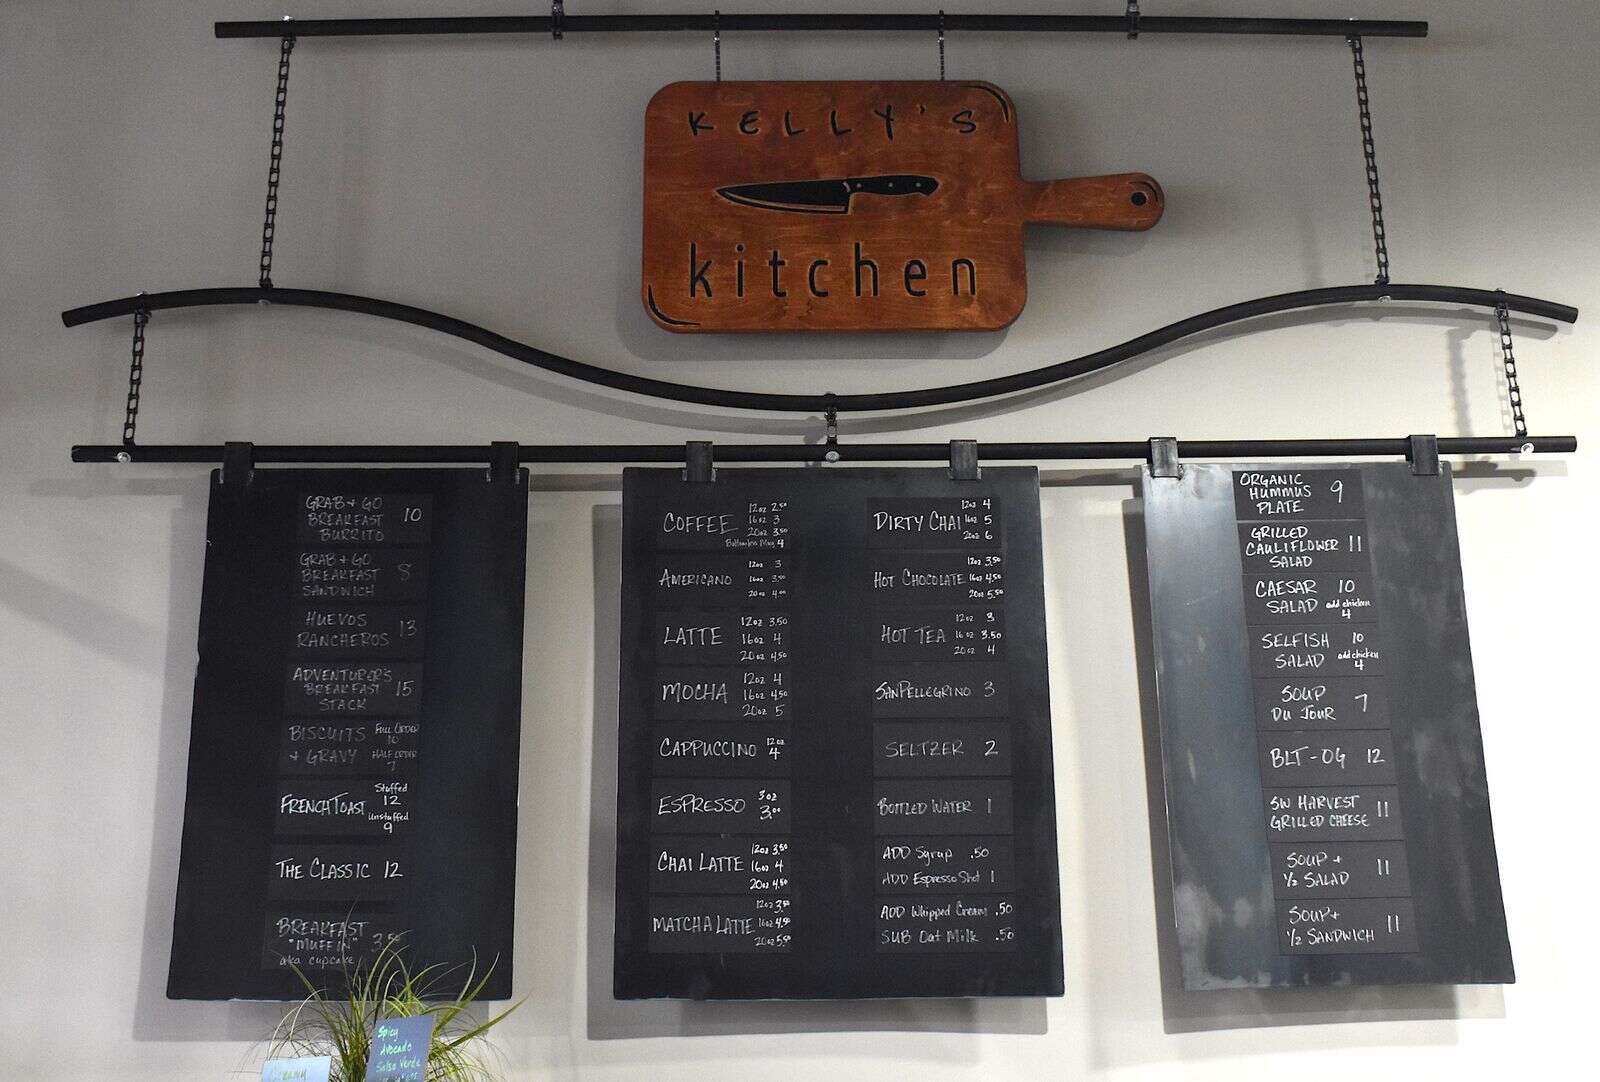 KELLY'S
kitchen
GRAB + GO
BREAKFAST 10
BURRITO
GRAB + GO
BREAKFAST 8
SANDWICH
HUEVOS
RANCHEROS 13
ADVENTURER'S
BREAKFAST 15
STACK
BISCUITS FULL ORDER
10
+ GRAVY HALF ORDER
7
Stuffed
FRENCH TOAST 12
Unstuffed
9
THE CLASSIC 12
BREAKFAST
"MUFFIN" 3.50
aka cupcake
12oz 2.50
COFFEE 16oz 3
20oz 3.50
Bottomless Mug 4
12oz 3
AMERICANO 16oz 3.50
20oz 4.00
12oz 3.50
LATTE 16oz 4
20oz 4.50
12oz 4
MOCHA 16oz 4.50
20oz 5
CAPPUCCINO 12oz
4
ESPRESSO 3oz
3.00
12oz 3.50
CHAI LATTE 16oz 4
20oz 4.50
12oz 3.50
MATCHA LATTE 16oz 4.50
20oz 5.50
12oz 4
DIRTY CHAI 16oz 5
20oz 6
12oz 3.50
HOT CHOCOLATE 16oz 4.50
20oz 5.50
12oz 3
HOT TEA 16oz 3.50
20oz 4
SANPELLEGRINO 3
SELTZER 2
BOTTLED WATER 1
ADD Syrup .50
ADD Espresso Shot 1
ADD Whipped Cream .50
SUB Oat Milk .50
ORGANIC
HUMMUS 9
PLATE
GRILLED
CAULIFLOWER 11
SALAD
CAESAR 10
SALAD add chicken
4
SELFISH 10
SALAD add chicken
4
SOUP
DU JOUR 7
BLT - OG 12
SW HARVEST
GRILLED CHEESE 11
SOUP +
1/2 SALAD 11
SOUP +
1/2 SANDWICH 11
Spicy
Avocado
Salsa Verde